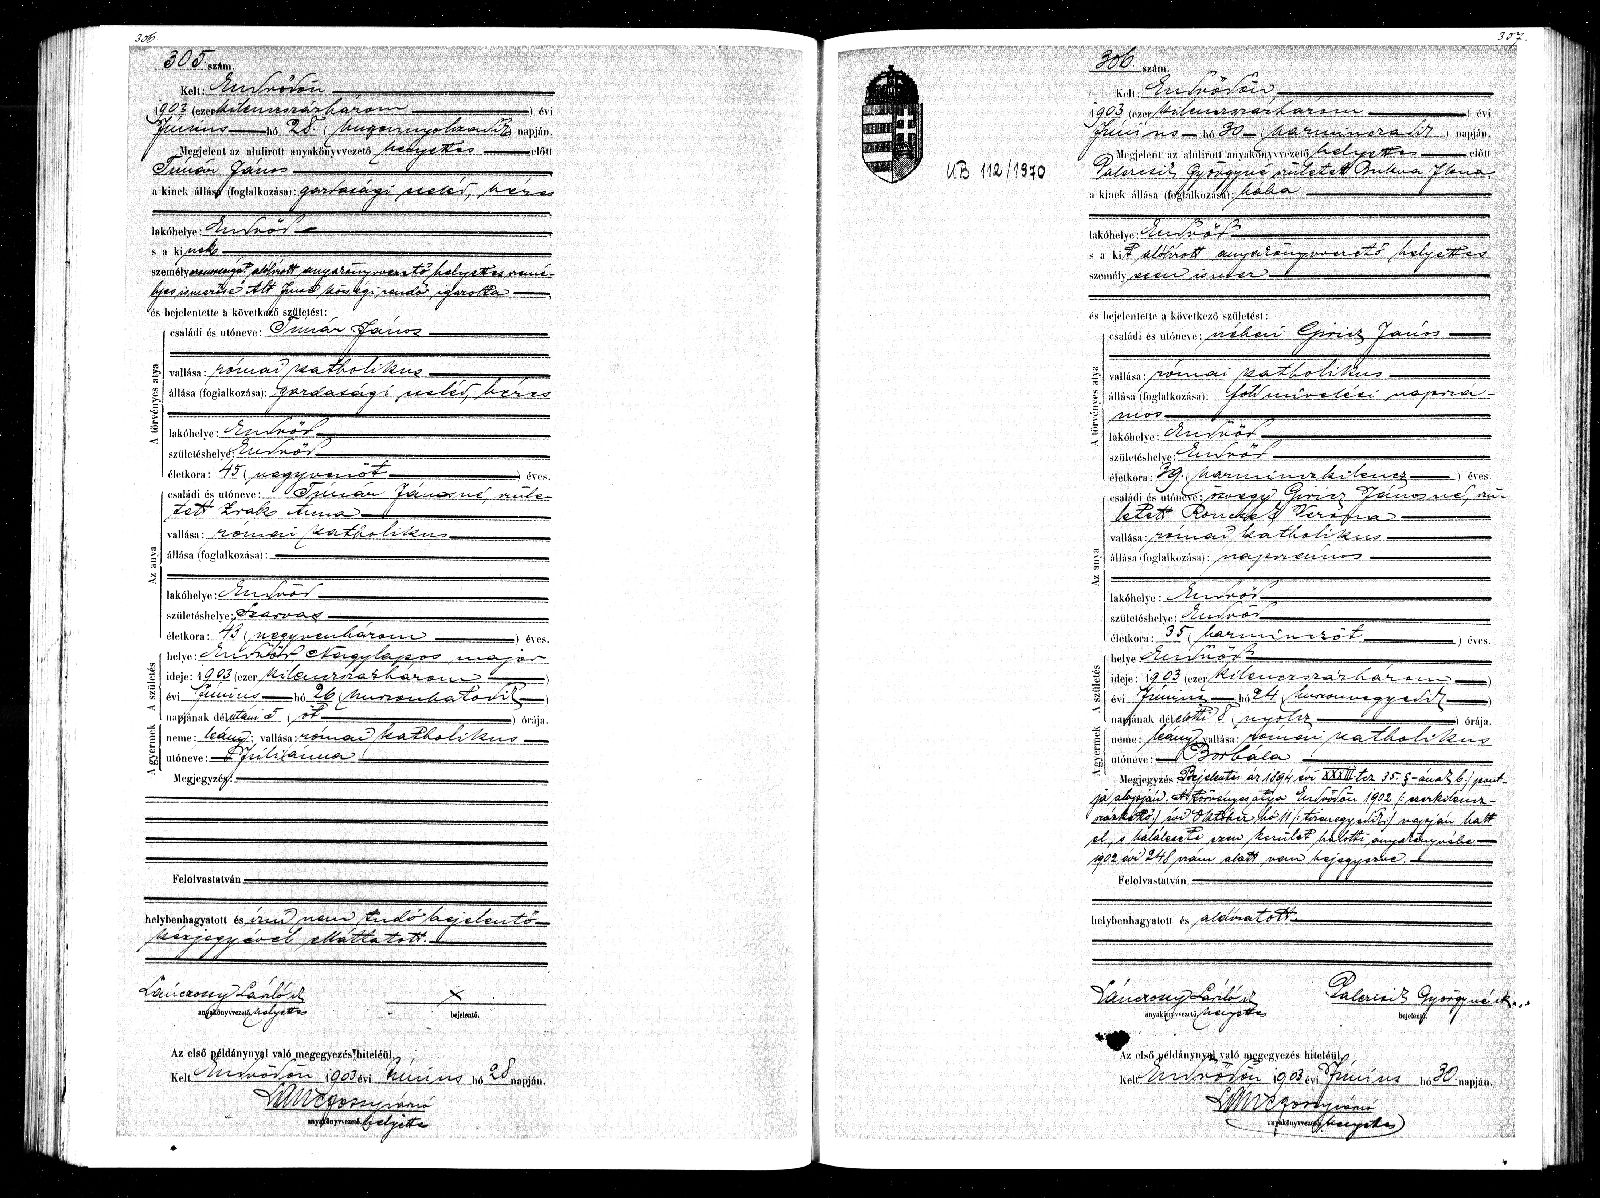 306.
305 szám.
Kelt: Endrődön
1903 (ezer kilenczszázhárom) évi
Június hó 28. (huszonnyolczadik) napján.
Megjelent az alulirott anyakönyvvezető helyettes előtt
Timár János
a kinek állása (foglalkozása): gazdasági cseléd, béres
lakóhelye: Endrőd
s a kinek
személyazonosságát alólírott anyakönyvvezető helyettes szemé-
lyes ismerőse, községi rendőr, igazolta
és bejelentette a következő születést:
A törvényes atya
családi és utóneve: Timár János
vallása: római katholikus
állása (foglalkozása): gazdasági cseléd, béres
lakóhelye: Endrőd
születéshelye: Endrőd
életkora: 45 (negyvenöt) éves.
Az anya
családi és utóneve: Timár Jánosné, szüle-
tett Anna
vallása: római katholikus
állása (foglalkozása):
lakóhelye: Endrőd
születéshelye: Szarvas
életkora: 43 (negyvenhárom) éves.
A születés
helye: Endrőd Nagylapos major
ideje: 1903 (ezer kilenczszázhárom)
évi Június hó 26 (huszonhatodik)
napjának délutáni 5 (öt) órája.
A gyermek
neme: leány; vallása: római katholikus
utóneve: Juliánna
Megjegyzés:
Felolvastatván
helybenhagyatott és írni nem tudó bejelentő
kézjegyével elláttatott.
Lánczossy László s.k. X
anyakönyvvezető helyettes bejelentő.
Az első példánynyal való megegyezés hiteléül.
Kelt Endrődön 1903 évi Június hó 28 napján.
anyakönyvvezető helyettes
307.
KB 112/1970
306 szám.
Kelt: Endrődön
1903 (ezer kilenczszázhárom) évi
Június hó 30 (harminczadik) napján.
Megjelent az alulirott anyakönyvvezető helyettes előtt
Palecsik Györgyné született Ilona
a kinek állása (foglalkozása): bába
lakóhelye: Endrőd
s a kit alólírott anyakönyvvezető helyettes
személyesen ismer
és bejelentette a következő születést:
A törvényes atya
családi és utóneve: néhai Giricz János
vallása: római katholikus
állása (foglalkozása): földmívelési napszá-
mos
lakóhelye: Endrőd
születéshelye: Endrőd
életkora: 39 (harminczkilencz) éves.
Az anya
családi és utóneve: özvegy Giricz Jánosné, szü-
letett Verona
vallása: római katholikus
állása (foglalkozása): napszámos
lakóhelye: Endrőd
születéshelye: Endrőd
életkora: 35 (harminczöt) éves.
A születés
helye Endrőd
ideje: 1903 (ezer kilenczszázhárom)
évi Június hó 24 (huszonnegyedik)
napjának délelőtti 8 (nyolcz) órája.
A gyermek
neme: leány; vallása: római katholikus
utóneve: Borbála
Megjegyzés Bejelentés az 1894 évi XXXIII tcz 35 §-ának b/ pont-
ja alapján. A törvényes atya Endrődön 1902 (: ezerkilencz-
százkettő) évi Október hó 11 (: tizenegyedik) napján halt
el, s halálesete ezen kerület halotti anyakönyvébe
1902 évi 248 szám alatt van bejegyezve.
Felolvastatván
helybenhagyatott és aláíratott.
Lánczossy László s.k. Palecsik Györgyné s.k.
anyakönyvvezető helyettes bejelentő.
Az első példánynyal való megegyezés hiteléül.
Kelt Endrődön 1903 évi Június hó 30 napján.
anyakönyvvezető helyettes